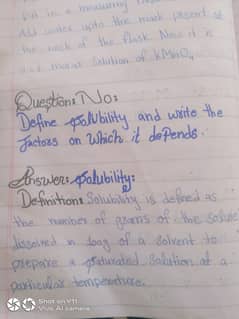 put in a measuring
Add water upto the mark present at
the neck of the flask Now it is
molar solution of KMnO4
Question: No:
Define solubility and write the
factors on which it depends.
Answer: Solubility:
Definition: Solubility is defined as
the number of grams of the solute
dissolved in 100g of a solvent to
prepare a saturated solution at a
particular temperature.
Shot on Y11
Vivo AI camera